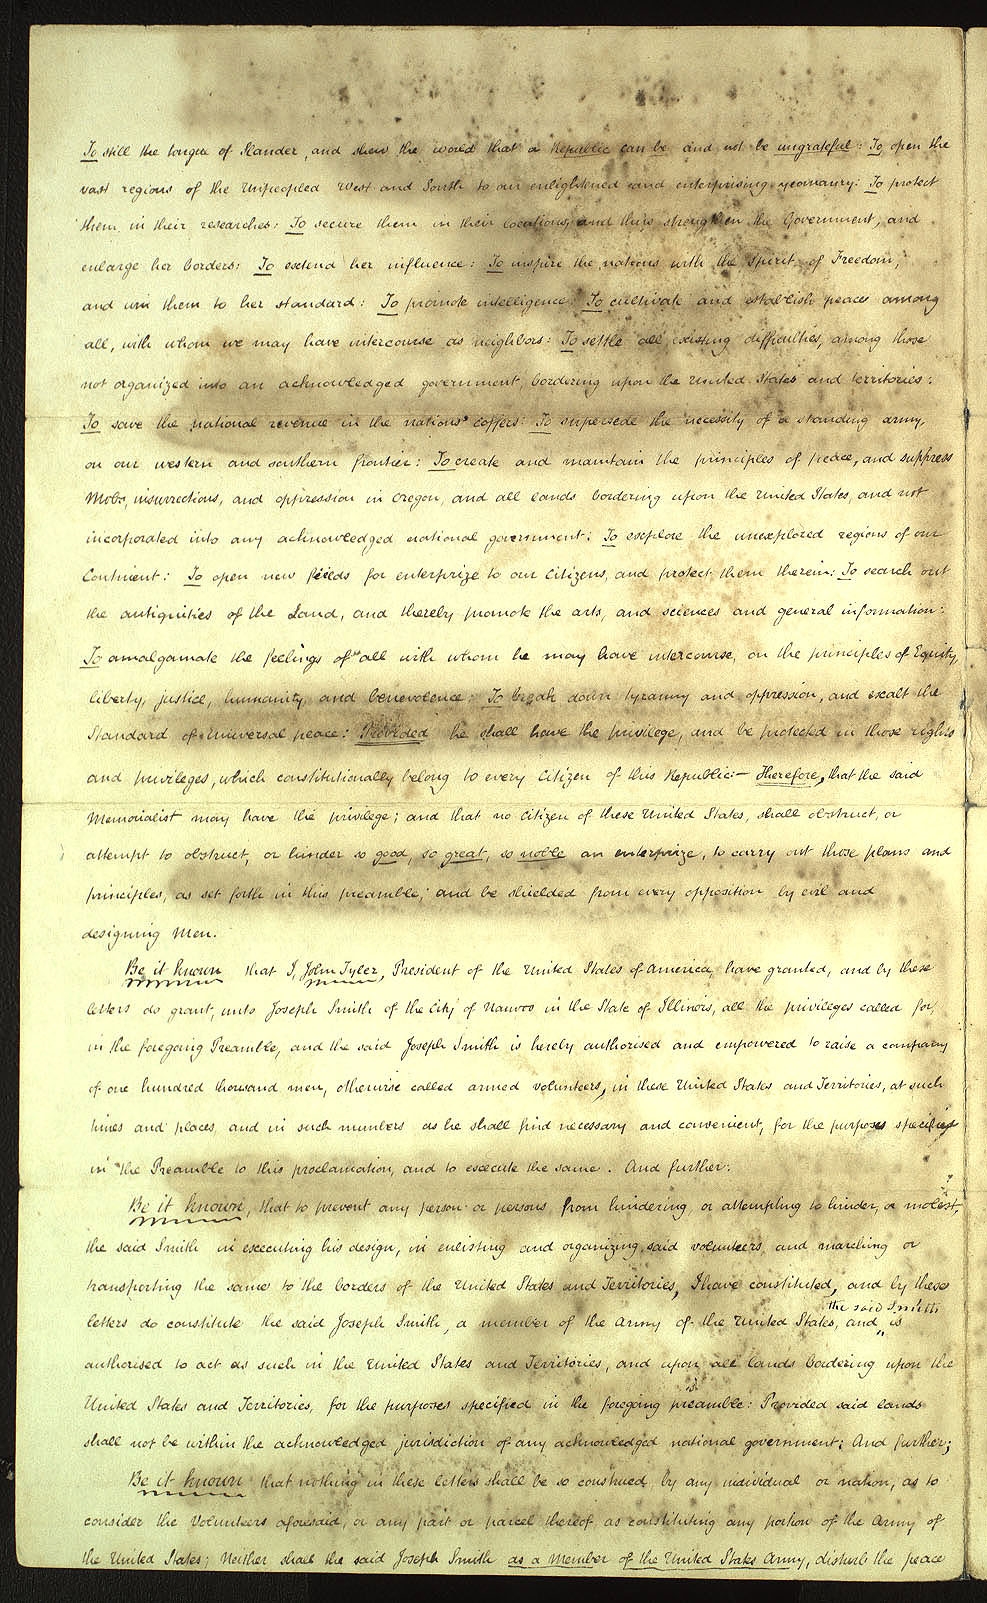 To still the tongue of Slander, and shew the world that a Republic can be and not be ungrateful: To open the
vast regions of the Unpeopled West and South to our enlightened and enterprising yeomanry: To protect
them in their researches: To secure them in their locations, and thus strengthen the Government, and
enlarge her borders: To extend her influence: To inspire the nations with the Spirit of Freedom,
and win them to her standard: To promote intelligence: To cultivate and establish peace among
all, with whom we may have intercourse as neighbors: To settle all existing difficulties, among those
not organized into an acknowledged government, bordering upon the United States and territories:
To save the national revenue in the nations' coffers: To supersede the necessity of a standing army,
on our western and southern frontier: To create and maintain the principles of peace, and suppress
Mobs, insurrections, and oppression in Oregon, and all lands bordering upon the United States, and not
incorporated into any acknowledged national government: To explore the unexplored regions of our
Continent: To open new fields for enterprize to our Citizens, and protect them therein: To search out
the antiquities of the Land, and thereby promote the arts, and sciences and general information:
To amalgamate the feelings of all with whom he may have intercourse, on the principles of Equity,
liberty, justice, humanity, and benevolence: To break down tyranny and oppression, and exalt the
Standard of Universal peace: Provided he shall have the privilege, and be protected in those rights
and privileges, which constitutionally belong to every Citizen of this Republic:— Therefore, that the said
Memorialist may have the privilege; and that no Citizen of these United States, shall obstruct, or
attempt to obstruct, or hinder so good, so great, so noble an enterprize, to carry out those plans and
principles, as set forth in this preamble; and be shielded from every opposition by evil and
designing Men.
Be it known that I, John Tyler, President of the United States of America, have granted, and by these
letters do grant, unto Joseph Smith of the City of Nauvoo in the State of Illinois, all the privileges called for,
in the foregoing Preamble, and the said Joseph Smith is hereby authorised and empowered to raise a company
of one hundred thousand men, otherwise called armed volunteers, in these United States and Territories, at such
times and places, and in such numbers as he shall find necessary and convenient, for the purposes specified
in the Preamble to this proclamation, and to execute the same. And further:
Be it known, that to prevent any person or persons from hindering, or attempting to hinder, or molest,
the said Smith in executing his design, in enlisting and organizing said volunteers, and marching or
transporting the same to the borders of the United States and Territories, I have constituted, and by these
letters do constitute the said Joseph Smith, a member of the army of the United States, and the said Smith is
authorised to act as such in the United States and Territories, and upon all lands bordering upon the
United States and Territories, for the purposes specified in the foregoing preamble: Provided said lands
shall not be within the acknowledged jurisdiction of any acknowledged national government: And further;
Be it known that nothing in these letters shall be so construed by any individual or nation, as to
consider the Volunteers aforesaid, or any part or parcel thereof as constituting any portion of the Army of
the United States; Neither shall the said Joseph Smith as a Member of the United States Army, disturb the peace